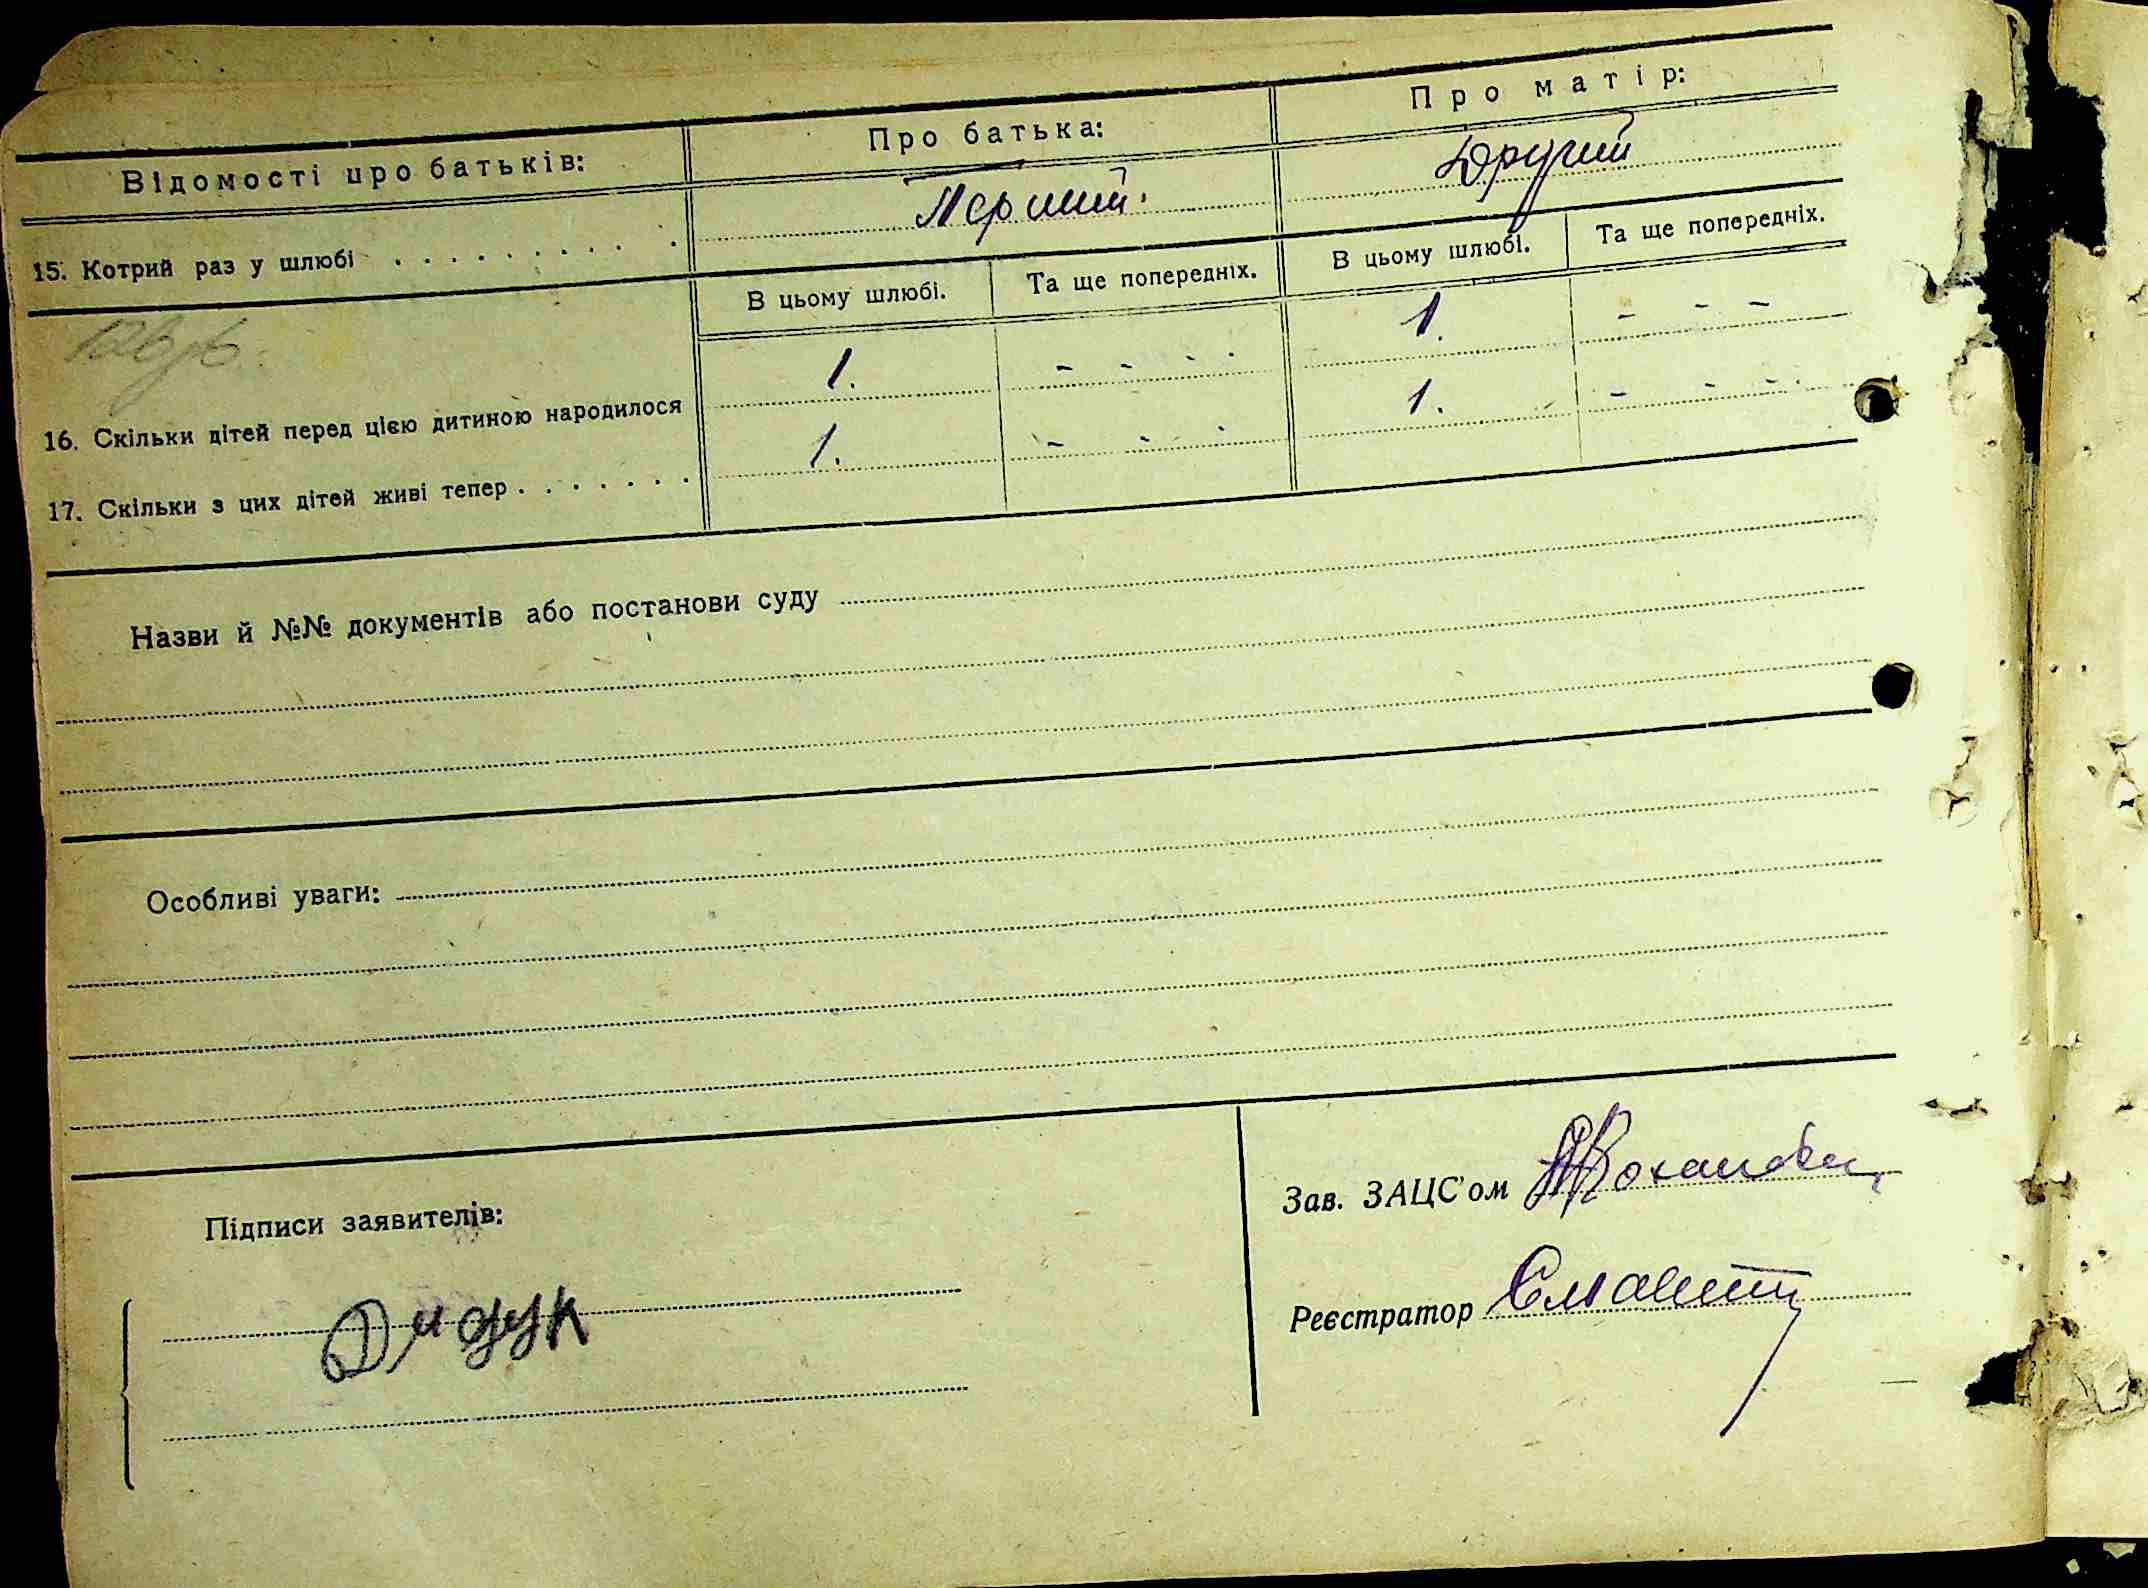 Відомості про батьків: Про батька: Про матір:
15. Котрий раз у шлюбі . . . . . . . . . . Перший. Другий
В цьому шлюбі. Та ще попередніх. В цьому шлюбі. Та ще попередніх.
16. Скільки дітей перед цією дитиною народилося 1. - - - - 1. - - -
17. Скільки з цих дітей живі тепер . . . . . . . 1. - - - 1. - - -
Назви й №№ документів або постанови суду
Особливі уваги:
Підписи заявителів:
Зав. ЗАЦС'ом
Дидук
Реєстратор